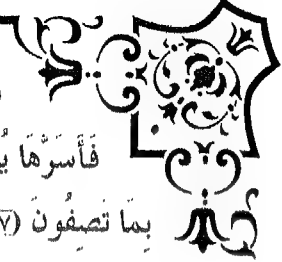 فَأَسَرَّهَا
بِمَا تَصِفُونَ